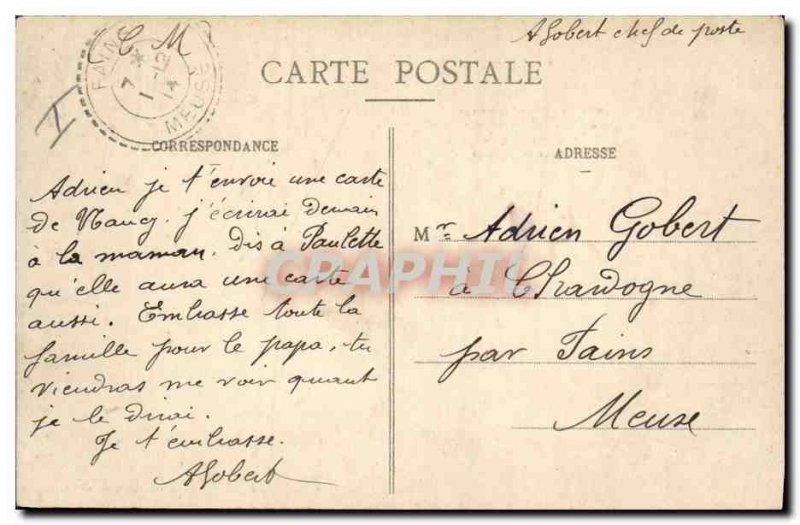 C M
A Gobert chef de poste
FAINS
7 - 12
14
MEUSE
CARTE POSTALE
I
CORRESPONDANCE
ADRESSE
Adrien je t'envoie une carte
de Nancy. j'écrirai demain
à la maman. dis à Paulette
qu'elle aura une carte
aussi. Embrasse toute la
famille pour le papa, tu
viendras me voir quant
je le dirai.
Je t'embrasse.
AGobert
Mr Adrien Gobert
à Chardogne
par Fains
Meuse